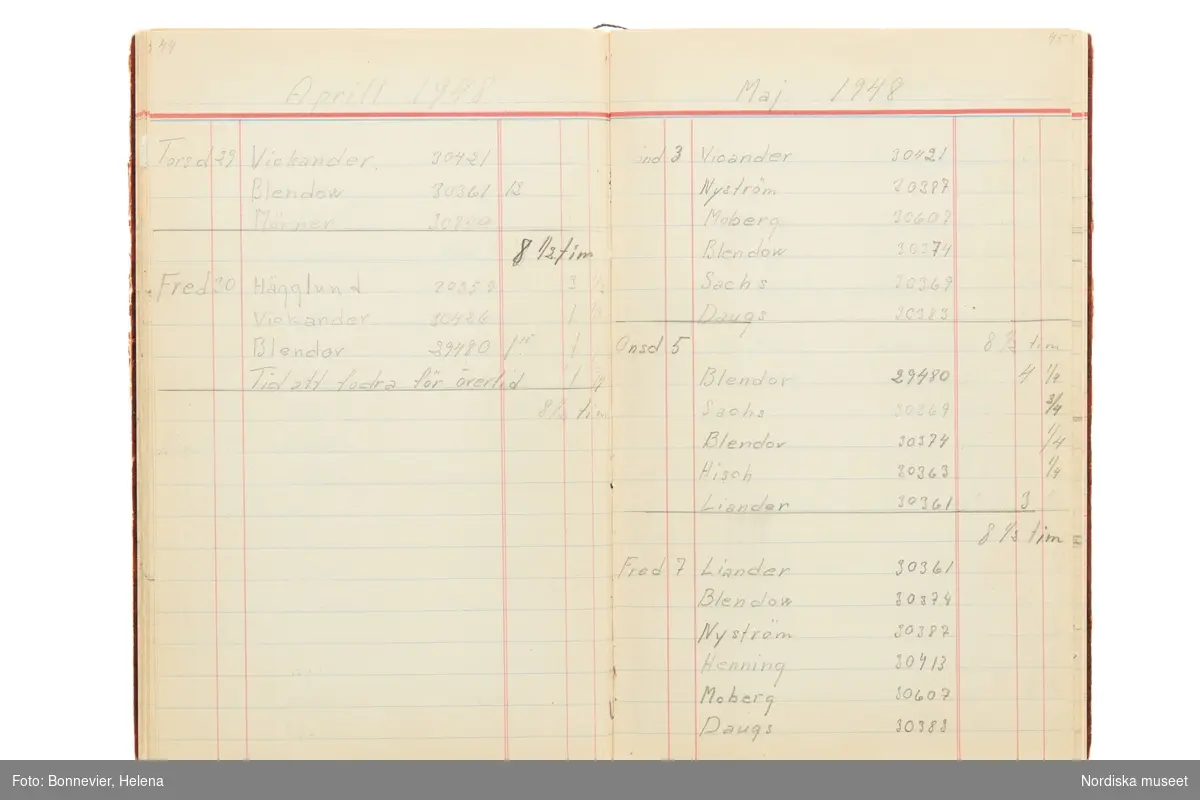 44
Aprill 1948
Torsd 29 Vickander. 30421
Blendow 30361 13
Mörner
8 1/2 tim
Fred 30 Hägglund 20359 3 1/2
Vickander 30426 1
Blendor 29480 1
Tid att fodra för övertid 1 1/4
8 1/2 tim
45
Maj 1948
nd 3 Vicander 30421
Nyström 30387
Moberg 30607
Blendow 30374
Sachs 30369
Daugs 30383
8 1/2 tim
Onsd 5
Blendor 29480 4 1/4
Sachs 30369 3/4
Blendor 30374 1/4
Hisch 30363 1/4
Liander 30361 3
8 1/2 tim
Fred 7 Liander 30361
Blendow 30374
Nyström 30387
Henning 30413
Moberg 30607
Daugs 30383
Foto: Bonnevier, Helena
Nordiska museet